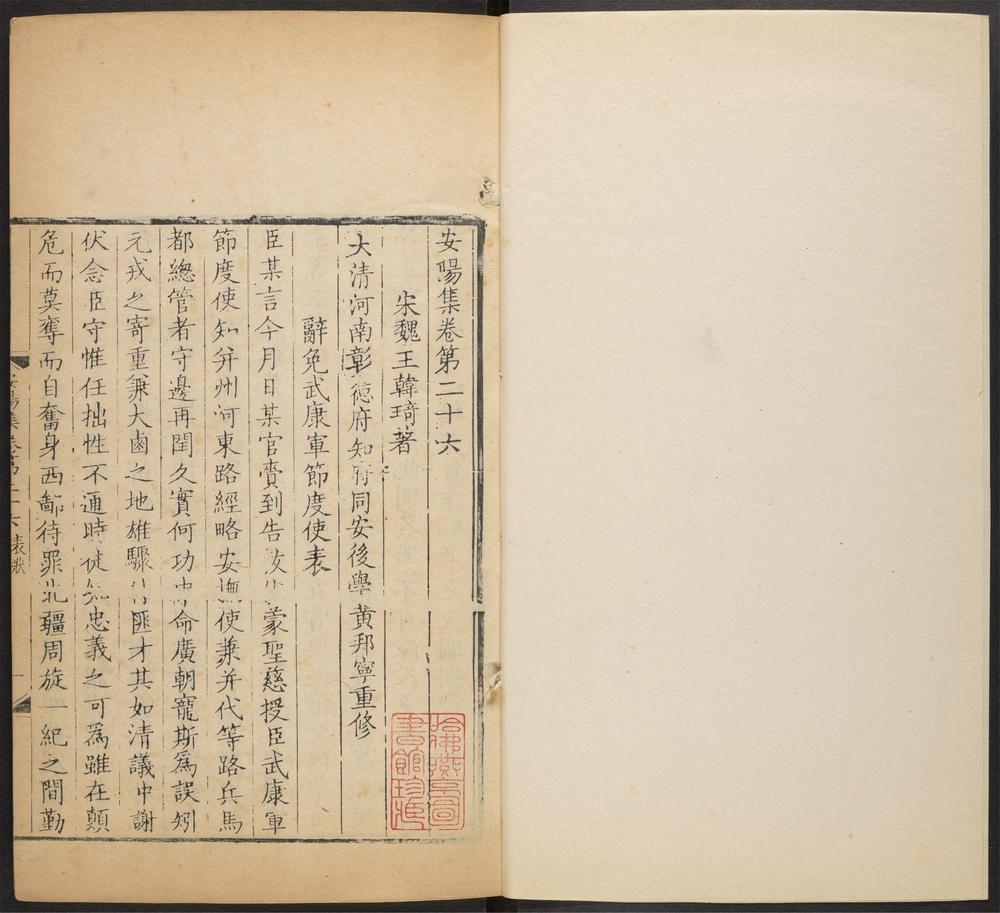 安陽集卷第二十六
宋魏王韓琦著
大清河南彰德府知府同安後學黃邦寧重修
辭免武康軍節度使表
臣某言今月日某官賫到告敕蒙聖慈授臣武康軍
節度使知并州河東路經略安撫使兼并代等路兵馬
都總管者守邊再閏久實何功命廣朝寵斯為誤矧
元戎之寄重兼大鹵之地雄驟匪才其如清議中謝
伏念臣守惟任拙性不通時徒知忠義之可為雖在顛
危而莫奪而自奮身西鄙待罪北疆周旋一紀之間勤
安陽集卷第二十六 表狀 一
哈佛燕京圖
書館珍藏